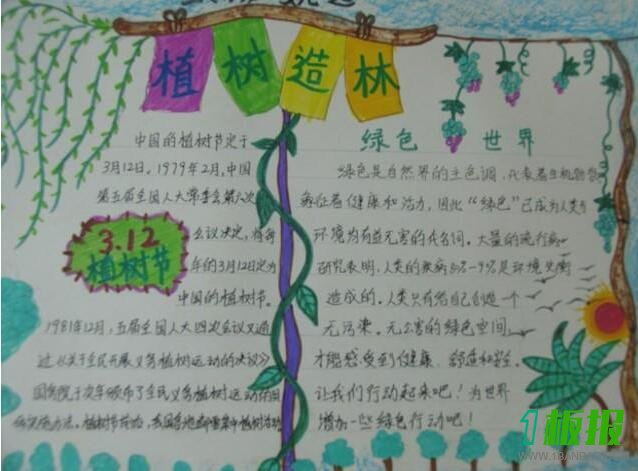 植树造林
中国的植树节定于
3月12日。1979年2月,中国
第五届全国人大常委会第六次
会议决定,将每
年的3月12日定为
中国的植树节。
3.12
植树节
1981年12月,五届全国人大四次会议又通
过《关于全民开展义务植树运动的决议》
国务院于次年颁布了全民义务植树运动的
实施办法。植树节前后,各地都要集中植树活动
绿色 世界
绿色是自然界的主色调,代表着生机勃勃
象征着健康和活力,因此"绿色"已成为人类与
环境为有益无害的代名词。大量的流行病
研究表明,人类的疾病 是环境失衡
造成的。人类只有给自己创造一个
无污染。无公害的绿色空间,
才能感受到健康、舒适和
让我们行动起来吧!为世界
增加一些绿色行动吧!
1板报
WWW.1BANBAO.COM